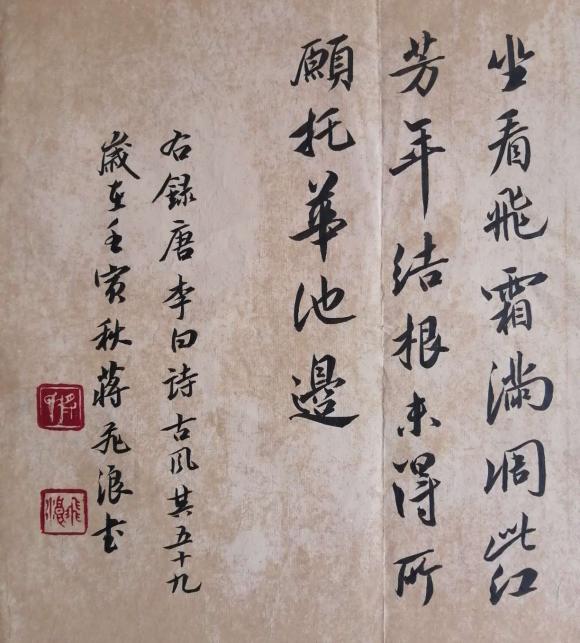 坐看飛霜滿凋此紅
芳年結根未得所
願托華池邊
右錄唐李白詩古風其五十九
歲在壬寅秋蔣飛浪書
飛浪